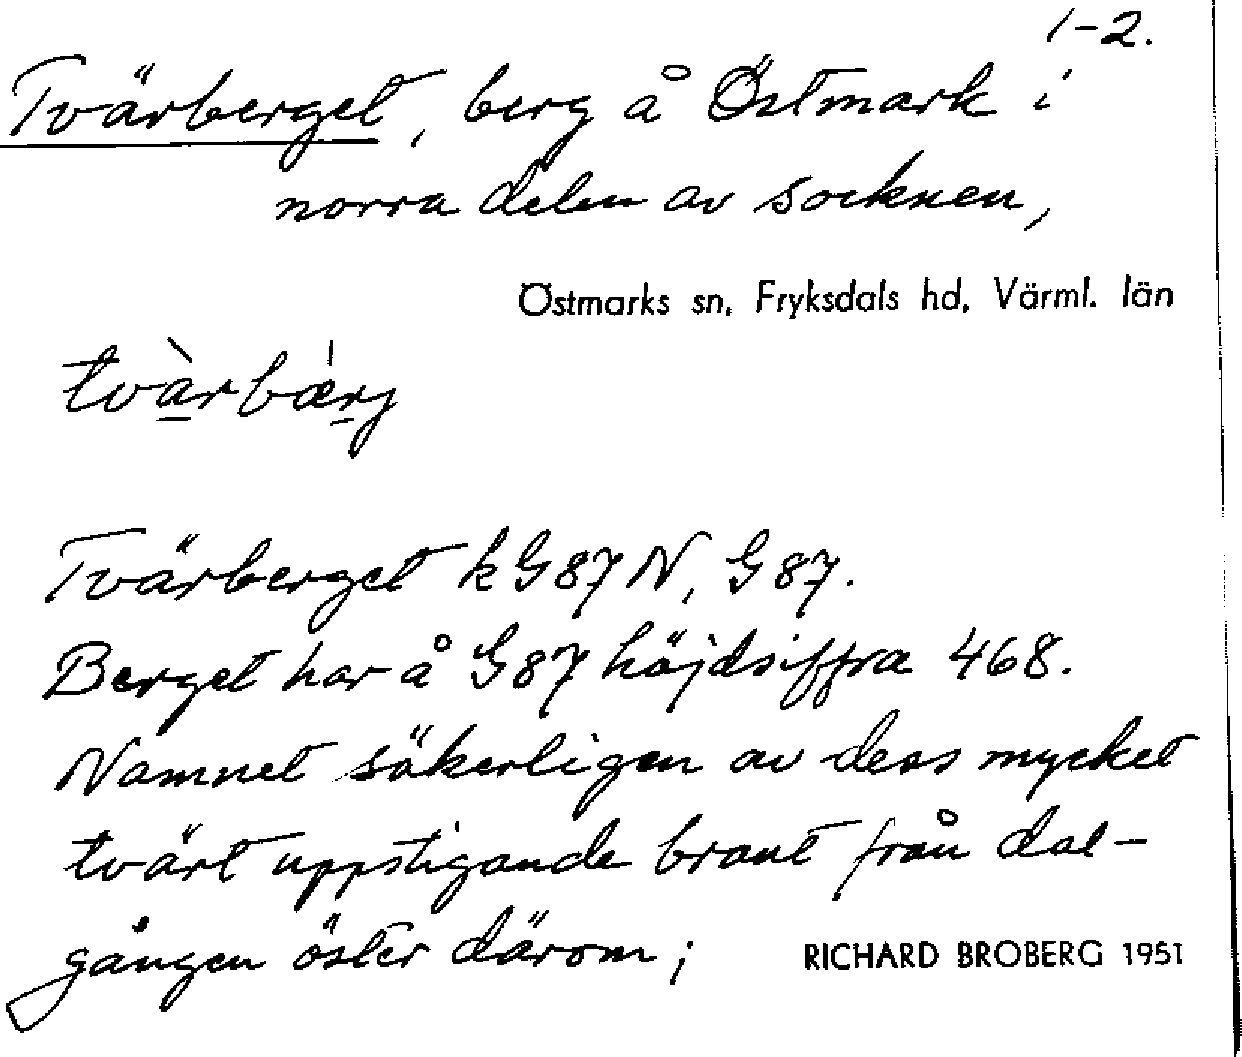 1-2.
Tvärberget, berg å Östmark i
norra delen av socknen,
Östmarks sn, Fryksdals hd, Värml. län
tvàrbæ̍rj
Tvärberget k G87 N, G 87.
Berget har å G87 höjdsiffra 468.
Namnet säkerligen av dess mycket
tvärt uppstigande brant från dal-
gången öster därom;
RICHARD BROBERG 1951